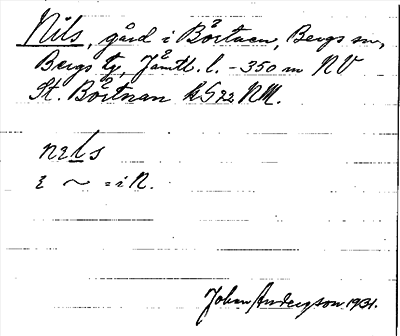 Nils, gård i Börtnan, Bergs sn,
Bergs tg, Jämtl. l. - 350 m NV
St. Börtnan kS22 NM.
nɪls
i ~ = i N.
Johan Anderzson 1931.